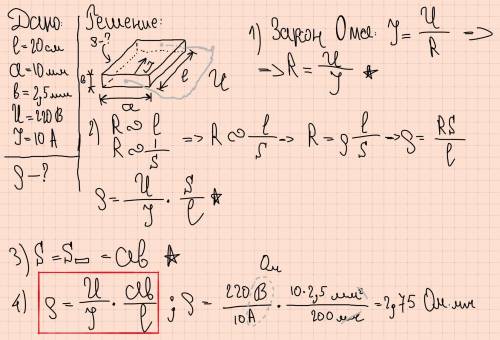 Дано: Решение:
l=20см
a=10мм
в=2,5мм
U=220В
I=10А
ρ-?
ρ-?
в
I
a
l
U
1) Закон Ома: I = U/R ->
-> R = U/I ★
2) R ∞ l
R ∞ 1/S
=> R ∞ l/S -> R = ρ l/S -> ρ = RS/l
ρ = U/I · S/l ★
3) S = S▭ = aв ★
4) ρ = U/I · aв/l ; ρ = 220В/10А · 10·2,5 мм²/200мм = 2,75 Ом·мм
Ом